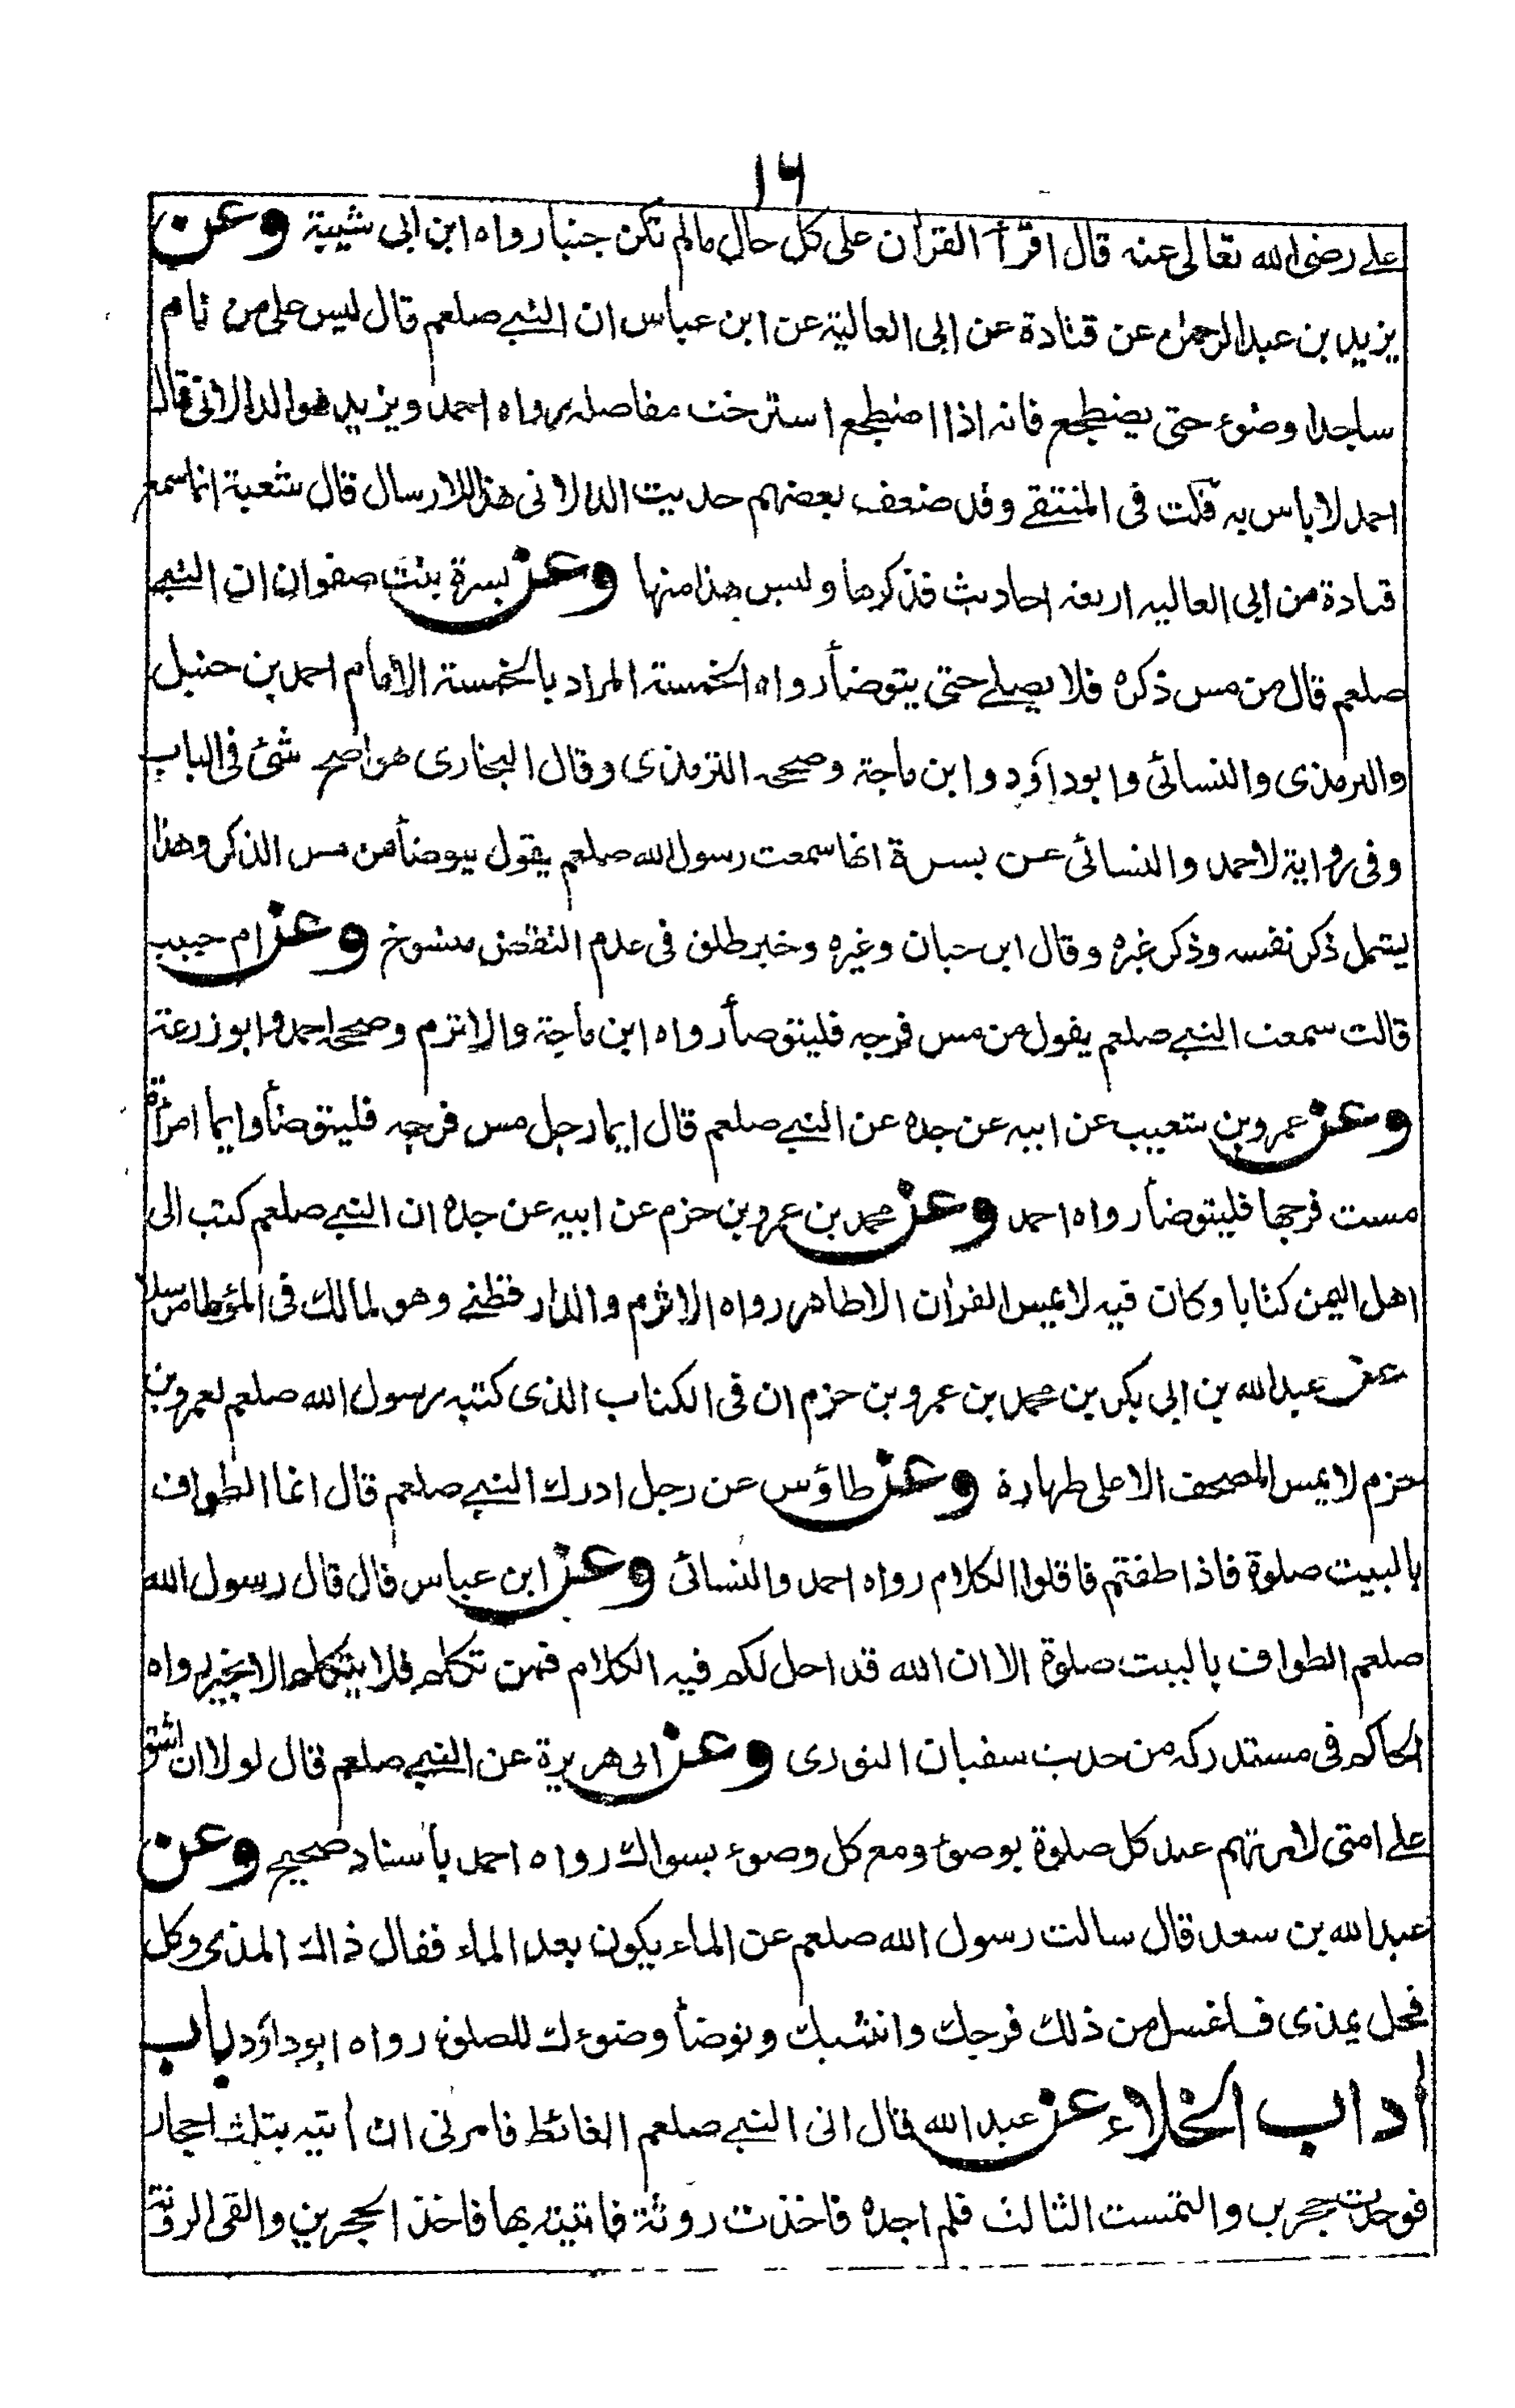 ١٦
علي رضى الله تعالى عنه قال اقرأ القرآن على كل حال مالم تكن جنبا رواه ابن ابى شيبة وعن
يزيد بن عبد الرحمن عن قتادة عن ابى العالية عن ابن عباس ان النبي صلعم قال ليس على من نام
ساجدا وضوء حتى يضطجع فانه اذا اضطجع استرخت مفاصله رواه احمد ويزيد هو الدالانى قال
احمد لا باس به قلت فى المنتقى وقد ضعف بعضهم حديث الدالانى هذا للارسال قال شعبة انما سمع
قتادة من ابى العاليه اربعة احاديث فذكرها وليس هذا منها وعن بسرة بنت صفوان ان النبي
صلعم قال من مس ذكره فلا يصلي حتى يتوضأ رواه الخمسة المراد بالخمسة الامام احمد بن حنبل
والترمذى والنسائى وابو داؤد وابن ماجة وصححه الترمذى وقال البخارى هو اصح شئ فى الباب
وفى رواية لاحمد والنسائى عن بسرة انها سمعت رسول الله صلعم يقول يتوضأ من مس الذكر وهذا
يشمل ذكر نفسه وذكر غيره وقال ابن حبان وغيره وخبر طلق فى عدم النقض منسوخ وعن ام حبيبة
قالت سمعت النبي صلعم يقول من مس فرجه فليتوضأ رواه ابن ماجة والاثرم وصححه احمد وابو زرعة
وعن عمرو بن شعيب عن ابيه عن جده عن النبي صلعم قال ايما رجل مس فرجه فليتوضأ وايما امرأة
مست فرجها فليتوضأ رواه احمد وعن محمد بن عمرو بن حزم عن ابيه عن جده ان النبي صلعم كتب الى
اهل اليمن كتابا وكان فيه لا يمس القرآن الا طاهر رواه الاثرم والدارقطنى وهو لمالك فى المؤطا مرسلا
عن عبد الله بن ابى بكر بن محمد بن عمرو بن حزم ان فى الكتاب الذى كتبه رسول الله صلعم لعمرو بن
حزم لا يمس المصحف الا على طهارة وعن طاؤس عن رجل ادرك النبي صلعم قال انما الطواف
بالبيت صلوة فاذا طفتم فاقلوا الكلام رواه احمد والنسائى وعن ابن عباس قال قال رسول الله
صلعم الطواف بالبيت صلوة الا ان الله قد احل لكم فيه الكلام فمن تكلم فلا يتكلم الا بخير رواه
الحاكم فى مستدركه من حديث سفيان الثورى وعن ابى هريرة عن النبي صلعم قال لولا ان اشق
على امتى لامرتهم عند كل صلوة بوضوء ومع كل وضوء بسواك رواه احمد باسناد صحيح وعن
عبد الله بن سعد قال سالت رسول الله صلعم عن الماء يكون بعد الماء فقال ذاك المذى وكل
فحل يمذى فاغسل من ذلك فرجك وانثييك وتوضأ وضوءك للصلوة رواه ابو داؤد باب
آداب الخلاء عن عبد الله قال اتى النبي صلعم الغائط فامرنى ان اتيه بثلث احجار
فوجدت حجرين والتمست الثالث فلم اجده فاخذت روثة فاتيته بها فاخذ الحجرين والقى الروثة